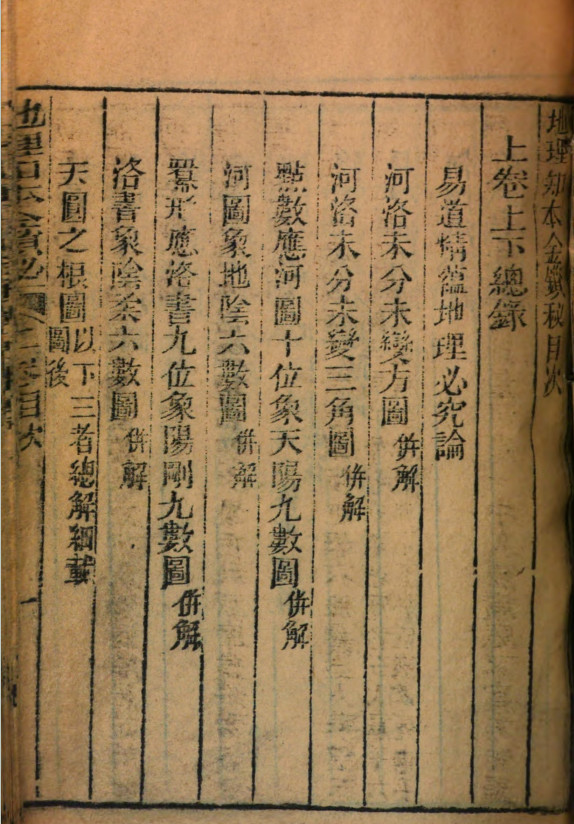 地理知本金鎖秘目次
上卷上下總錄
易道精蘊地理必究論
河洛未分未變方圖 併解
河洛未分未變三角圖 併解
點數應河圖十位象天陽九數圖 併解
河圖象地陰六數圖 併解
羃形應洛書九位象陽剛九數圖 併解
洛書象陰柔六數圖 併解
天圖之根圖 以下三者總解細載圖後